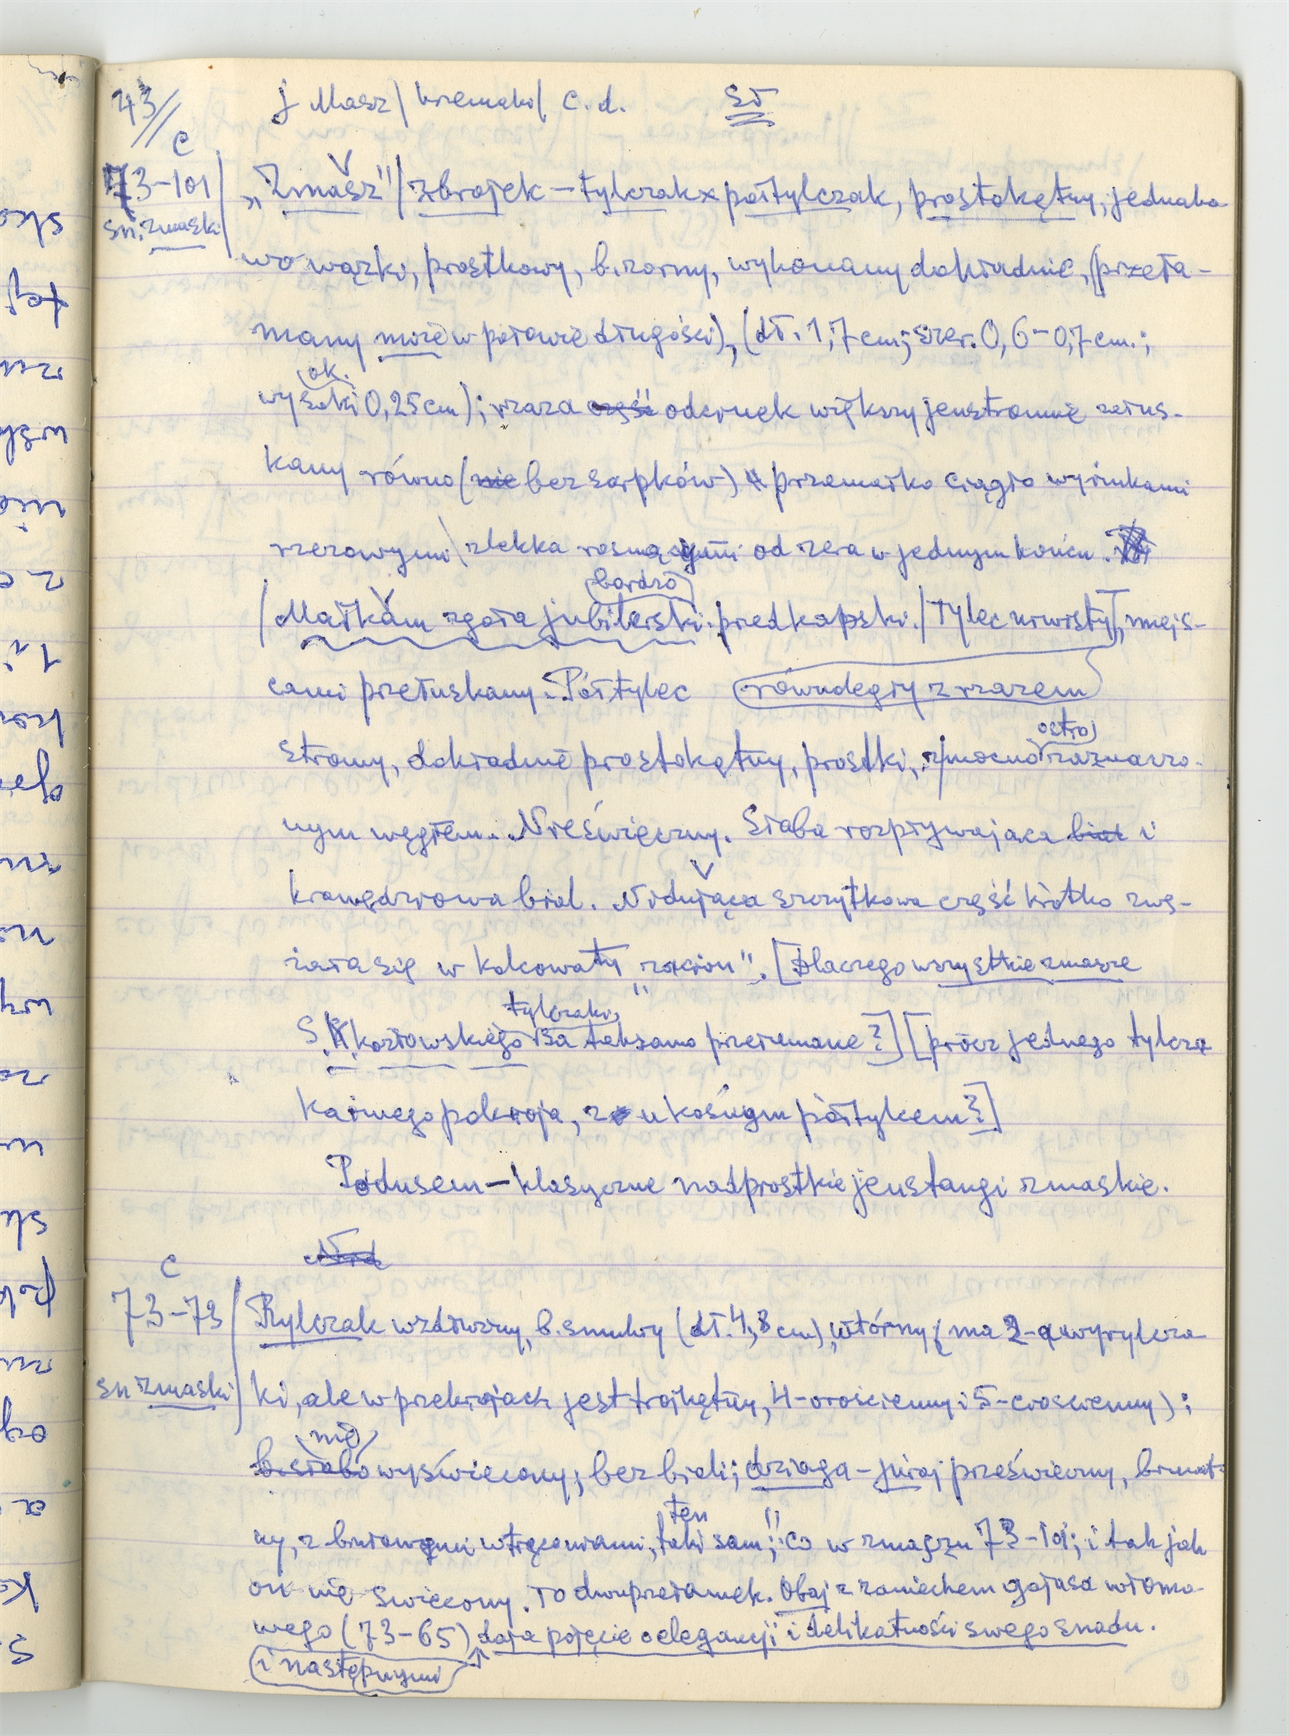 43//c j Masz/krzemaki/ c.d. SŁ
73-101 „Zmasz"/zbrojek – tylczak x półtylczak, prostokątny, jednako
sn. zmaski wo wązki, prostkowy, b. zorny, wykonany dokładnie, (przeła-
many może w połowie długości), (dł. 1,7 cm; szer. 0,6–0,7 cm.;
wysoki ok. 0,25 cm); rzaza część odcinek większy jenstronnie załus-
kany równo (nie bez sarpków) przemałko ciągło wyrinkami
rzezowymi \ zlekka rosnącymi od zera w jednym końcu.
/Małkam zgoła jubilerski bardzo: predkapski./ Tylec urwisty, miejs-
cami przełuskany. Półtylec równoległy z rzazem
stromy, dokładnie prostokątny, prostki, z mocno ostro zaznaczo-
nym węgłem. Nieświeczny. Słaba rozpływająca biał i
krawędziowa biel. Nidująca szczytkowa część krótko zwę-
żała się w kolcowaty "zacion". [Dlaczego wszystkie zmasze
S. Kozłowskiego tylczaki, są taksamo przełamane?] [prócz jednego tylcza
kaźnego pokroja, z ukośnym półtylcem?]
Podusem – klasyczne nadprostkie jenstangi zmaskie.
c
73-79 Rylczak wzdłużny, b. smukły (dł. 4,8 cm), wtórny (ma 2-a wyrylcza
sn zmaski ki, ale w przekrojach jest trójkątny, 4-orościenny i 5-cioscienny);
b. słabo nie wyświecony; bez bieli; dziaga-juraj prześwieczny, brunat-
ny, z brunawymi wtrąceniami, taki ten sam, "co w zmaszu 73-101; i tak jak
on nie świecony. To dwuprzełamek. Obaj z zaniechem gołasa włomo-
wego (73-65) dają pojęcie o elegancji i delikatności swego snadu.
i następnymi